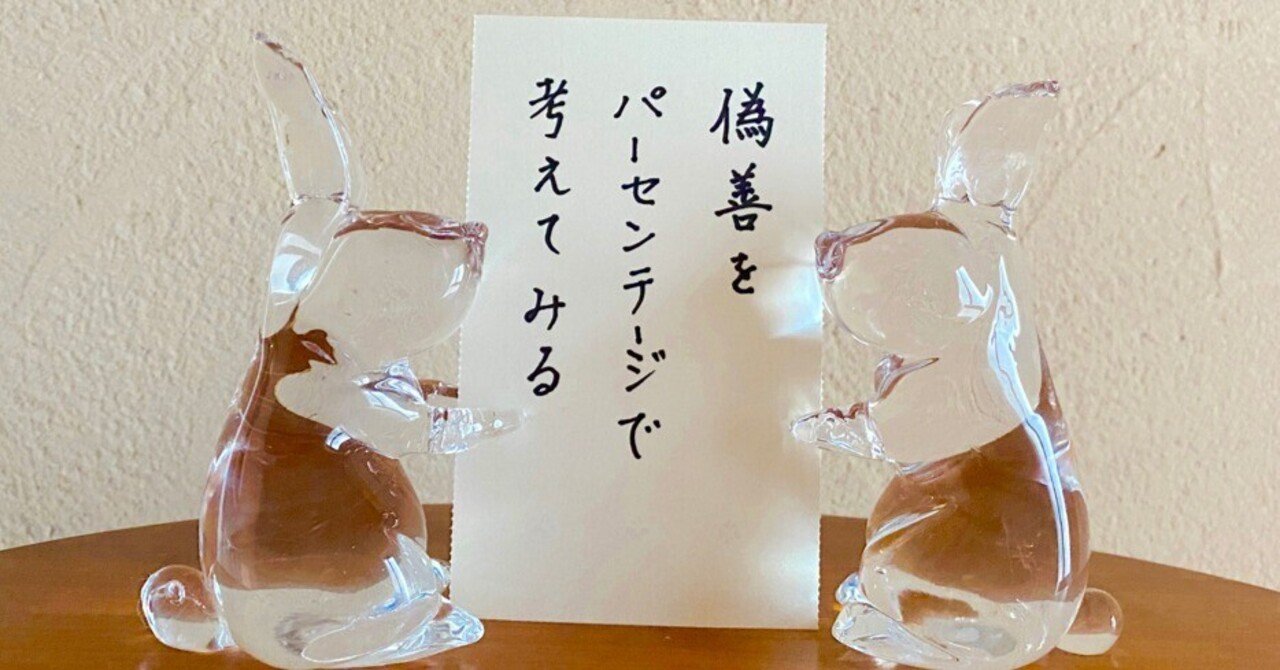 偽善を
パーセンテージで
考えてみる